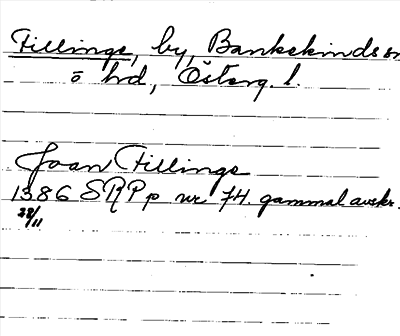 Fillinge, by, Bankekinds sn
ö hd, Österg. l.
Joan Fillinge
1386 SRPp nr 74. gammal avskr.
22/11